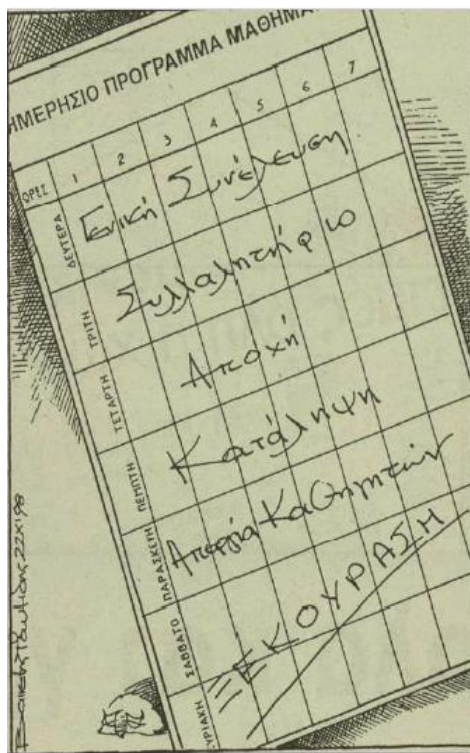 ΗΜΕΡΗΣΙΟ ΠΡΟΓΡΑΜΜΑ ΜΑΘΗΜΑ
ΩΡΕΣ 1 2 3 4 5 6 7
ΔΕΥΤΕΡΑ Γενική Συνέλευση
ΤΡΙΤΗ Συλλαλητήριο
ΤΕΤΑΡΤΗ Αποχή
ΠΕΜΠΤΗ Κατάληψη
ΠΑΡΑΣΚΕΥΗ Απεργία Καθηγητών
ΣΑΒΒΑΤΟ ΞΕΚΟΥΡΑΣΗ
ΚΥΡΙΑΚΗ
22XI98